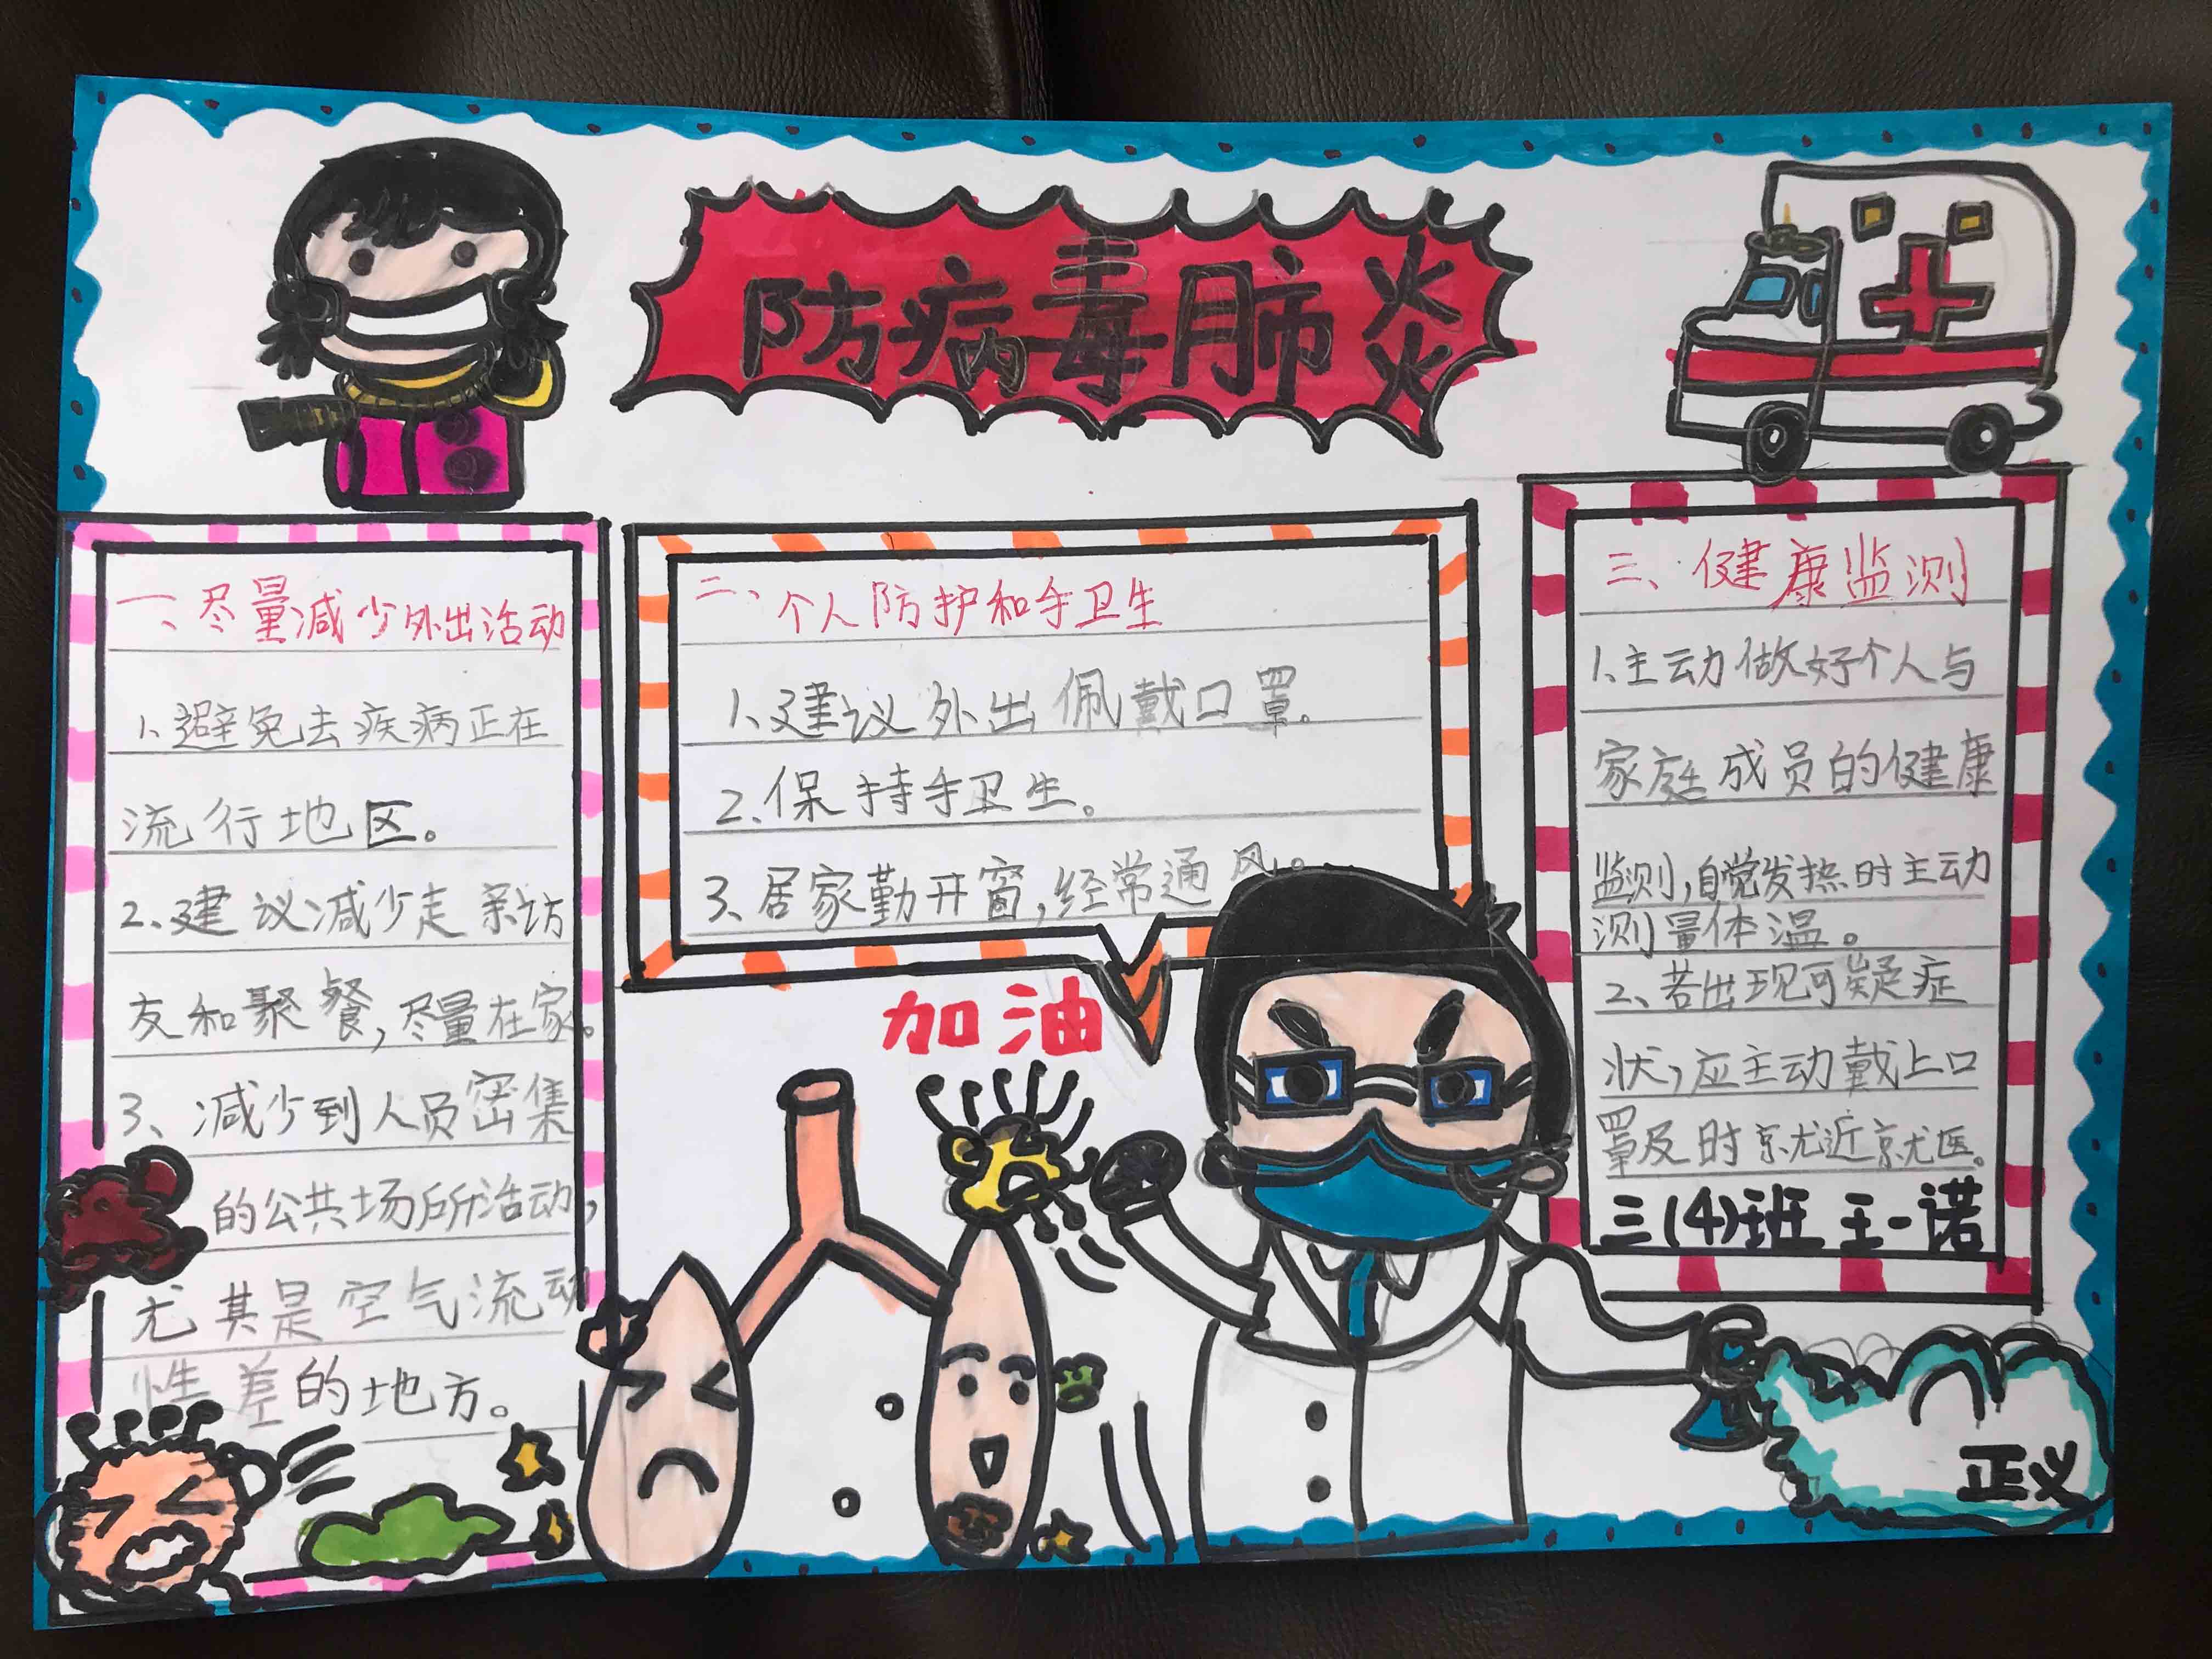 防病毒肺炎
一、尽量减少外出活动
1、避免去疾病正在
流行地区。
2、建议减少走亲访
友和聚餐,尽量在家。
3、减少到人员密集
的公共场所活动,
尤其是空气流动
性差的地方。
二、个人防护和手卫生
1、建议外出佩戴口罩。
2、保持手卫生。
3、居家勤开窗,经常通风。
加油
三、健康监测
1、主动做好个人与
家庭成员的健康
监测,自觉发热时主动
测量体温。
2、若出现可疑症
状,应主动戴上口
罩及时就近就医。
三(4)班 王一诺
正义